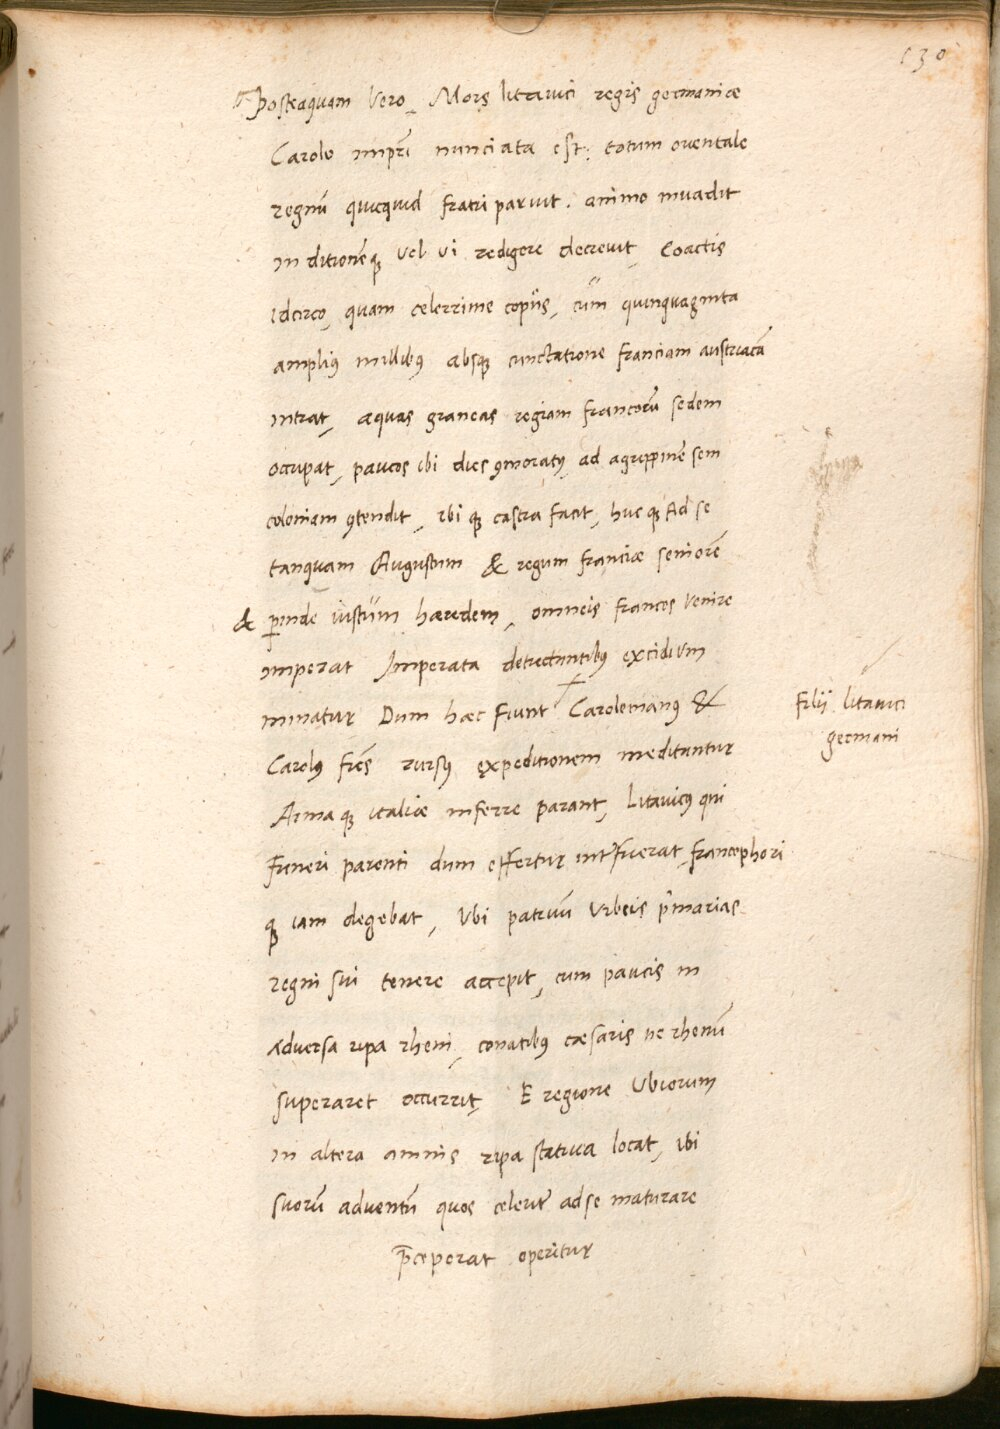 130
Posteaquam vero, Mors litauici regis germaniæ
Carolo impri nunciata est: totum orientale
regnū quicquid fratri paruit. animo inuadit
in ditionēq; vel vi redigere decreuit, Coactis
idcirco, quam celerrime copiis, cum quinquaginta
amplius millibus absq; cunctatione franciam austriacā
intrat, aquas graneas regiam francorū sedem
occupat, paucos ibi dies cōmoratus, ad agrippinē sem
coloniam cōtendit, ibi q; castra facit, huc q; ad se
tanquam Augustum & regum franciæ seniorē
& perinde iustum hæredem, omneis francos venire
imperat Imperata detrectantibus excidium
minatur Dum hæc fiunt Carolemanus &
Carolus frēs rursus expeditionem meditantur
Arma q; italiæ inferre parant, Litauicus qui
funeri parenti dum effertur interfuerat francephori
q; iam degebat, Vbi patruū vrbeis primarias
regni sui tenere accepit, cum paucis in
aduersa ripa rheni, conatibus cæsaris ne rhenū
superaret occurrit, E regione Vbiorum
in altera amnis ripa statiua locat, ibi
suorū aduentū quos celeriter ad se maturare
præceperat operitur
Filii litauici
germani